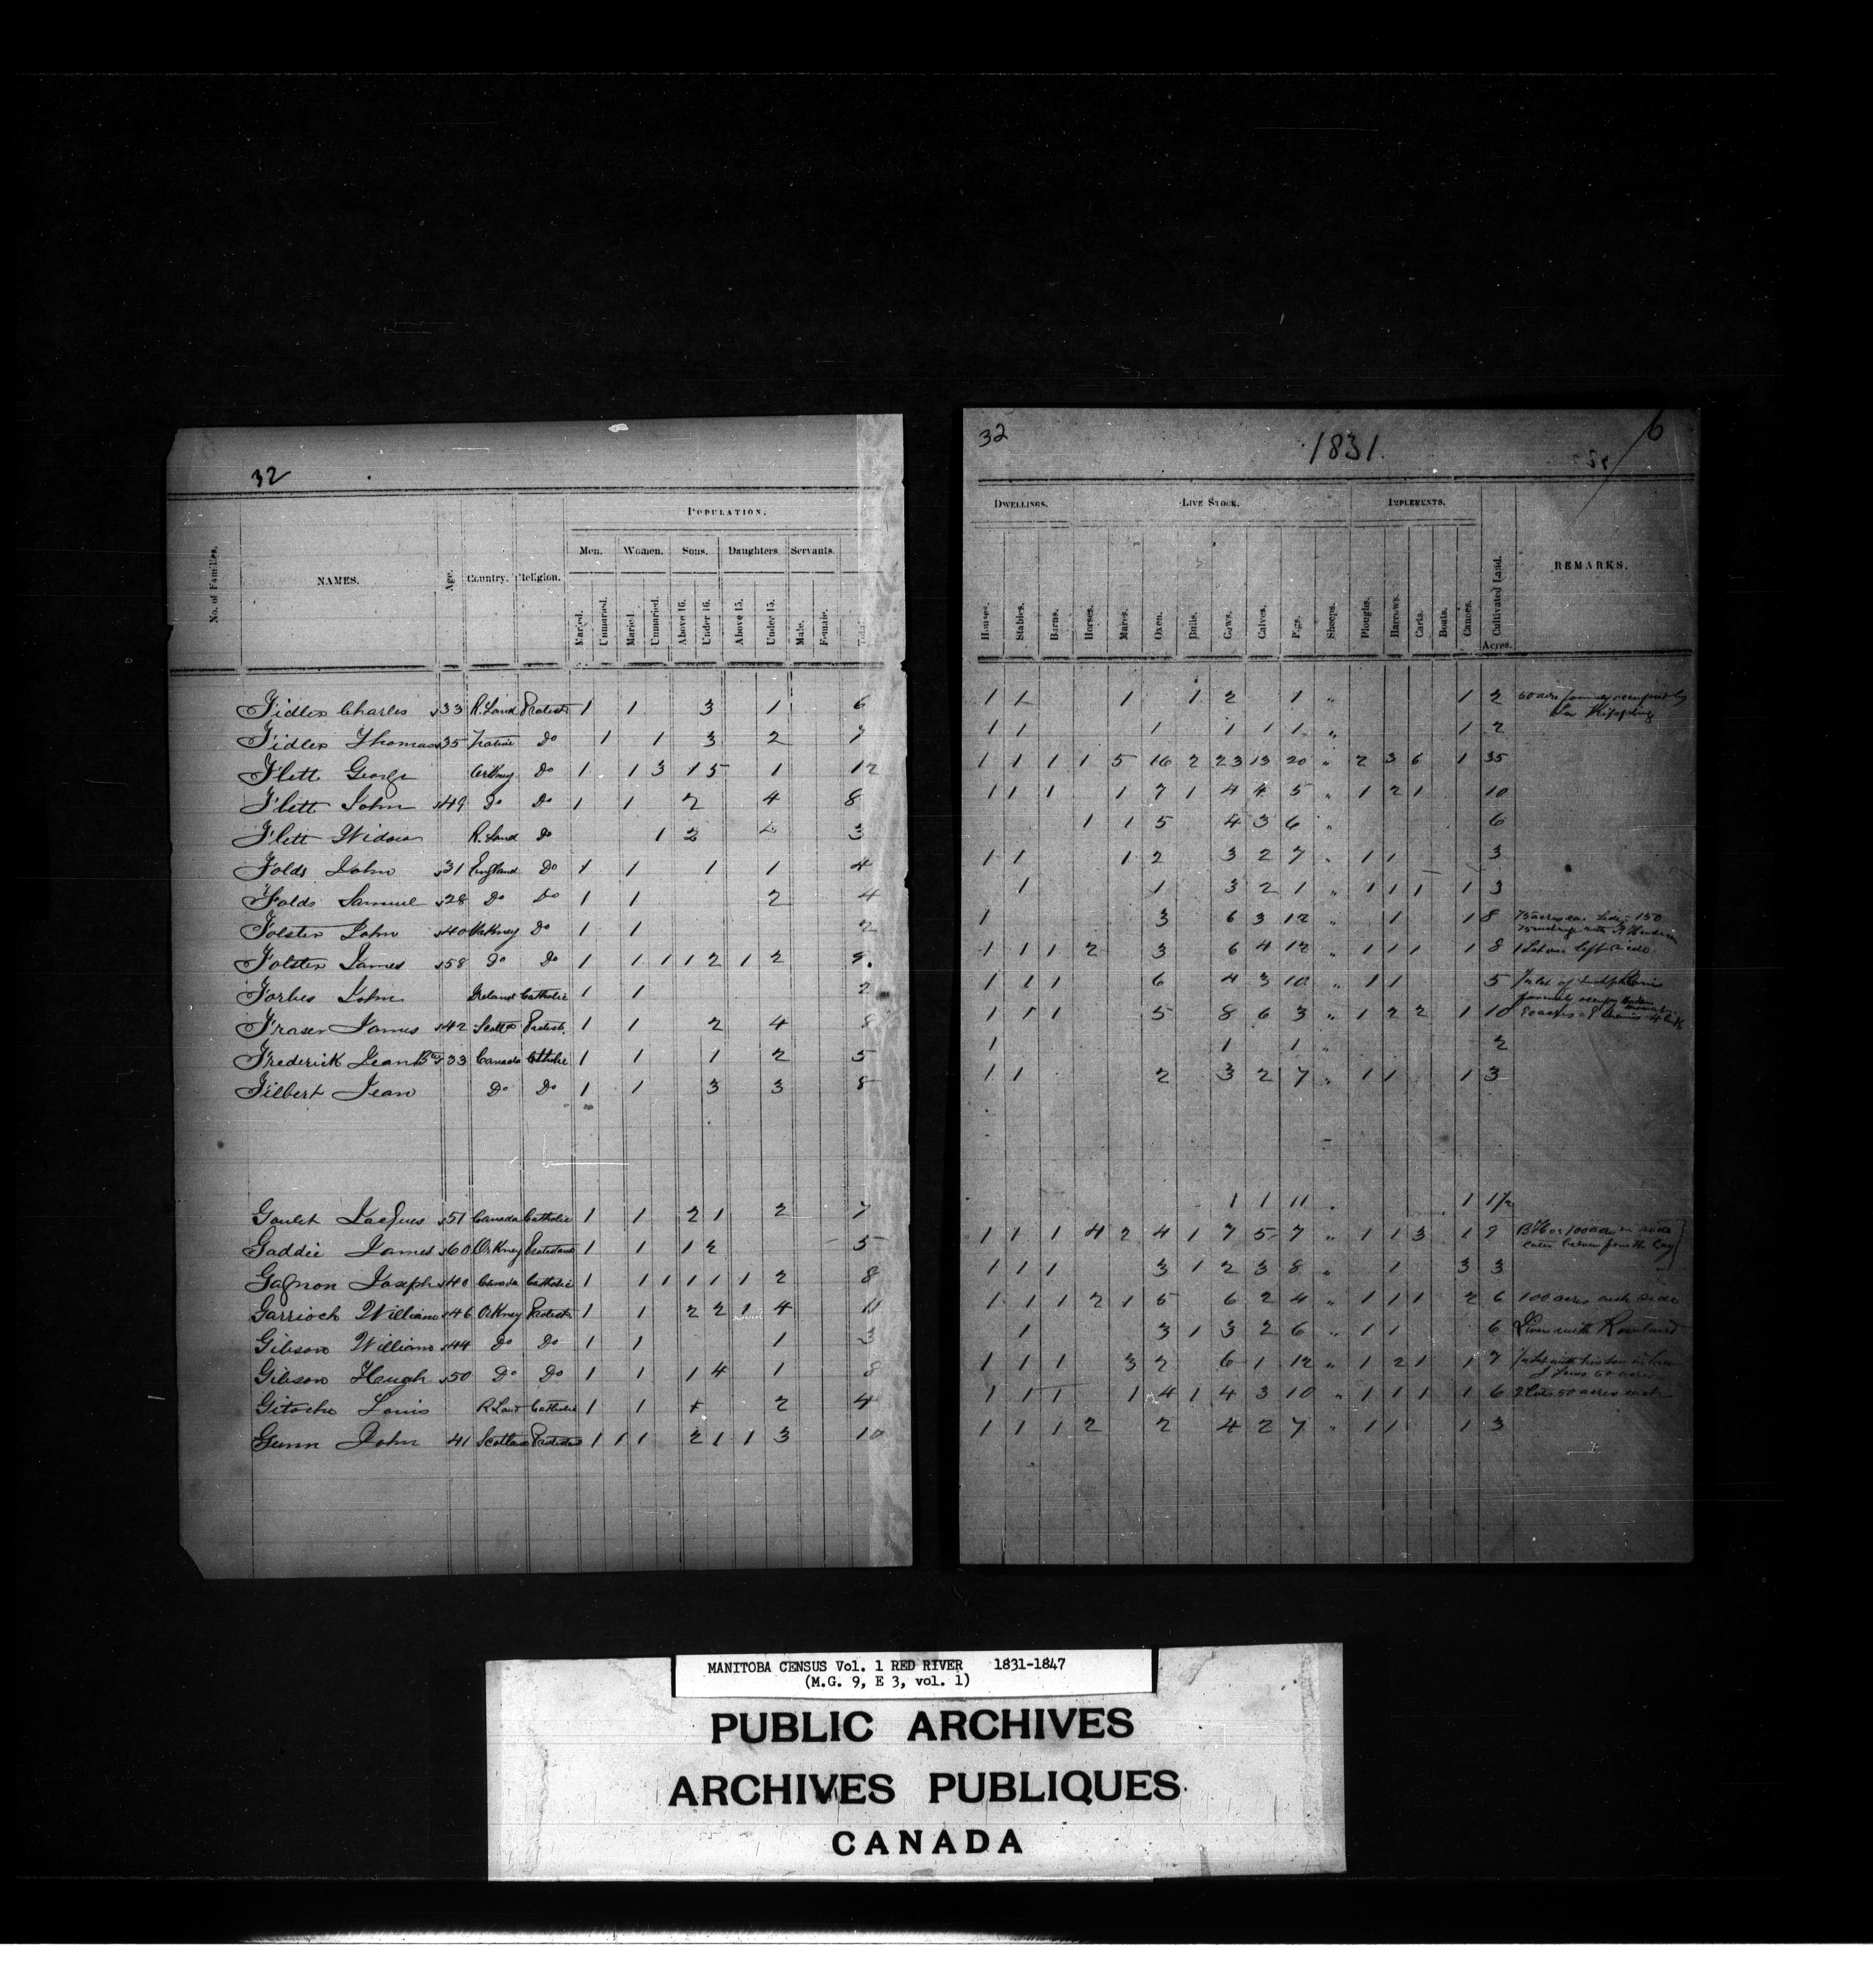 32
POPULATION.
Men. Women. Sons. Daughters Servants.
No. of Families. NAMES. Age. Country. Religion. Married. Unmaried. Maried. Unmaried. Above 16. Under 16. Above 15. Under 15. Male. Female. Total
Fidler Charles 33 R. Land Protest 1 1 3 1 6
Fidler Thomas 35 Native Do 1 1 3 2 7
Flett George Orkney Do 1 1 3 1 5 1 12
Flett John 49 Do Do 1 1 2 4 8
Flett Widow R. Land Do 1 2 3
Folds John 31 England Do 1 1 1 1 4
Folds Samuel 28 Do Do 1 1 2 4
Folster John 40 Orkney Do 1 1 2
Folster James 58 Do Do 1 1 1 1 2 1 2 9.
Forbes John Ireland Catholic 1 1 2
Fraser James 42 Scotd Protest. 1 1 2 4 8
Frederick Jean Bte 33 Canada Catholic 1 1 1 2 5
Filbert Jean Do Do 1 1 3 3 8
Goulet Jacques 51 Canada Catholic 1 1 2 1 2 7
Gaddie James 60 Orkney Protestant 1 1 1 2 5
Gagnon Joseph 40 Canada Catholic 1 1 1 1 1 1 2 8
Garrioch William 46 Orkney Protest 1 1 2 2 1 4 11
Gibson William 44 Do Do 1 1 1 3
Gibson Heugh 50 Do Do 1 1 1 4 1 8
Gitoche Louis R Land Catholic 1 1 2 4
Gunn John 41 Scotland Protestant 1 1 1 2 1 1 3 10
32 1831. 6
DWELLINGS. LIVE STOCK. IMPLEMENTS.
Houses. Stables. Barns. Horses. Mares. Oxen. Bulls. Cows. Calves. Pigs. Sheeps. Ploughs. Harrows. Carts. Boats. Canoes. Cultivated Land. Acres. REMARKS.
1 1 1 1 2 1 " 1 2 60 acre formerly occupied by
Kippling
1 1 1 1 1 1 " 1 2
1 1 1 1 5 16 2 23 13 20 " 2 3 6 1 35
1 1 1 1 7 1 4 4 5 " 1 2 1 10
1 1 5 4 3 6 " 6
1 1 1 2 3 2 7 " 1 1 3
1 1 3 2 1 " 1 1 1 1 3
1 3 6 3 12 " 1 1 8 75 acres ea. side: 150
1 1 1 2 3 6 4 12 " 1 1 1 1 8 1 Lot on left side.
1 1 1 6 4 3 10 " 1 1 5 1/2 lot of
1 1 1 5 8 6 3 " 1 2 2 1 10 80 acres
1 1 1 " 2
1 1 2 3 2 7 " 1 1 1 3
1 1 11 " 1 1 1/2
1 1 1 4 2 4 1 7 5 7 " 1 1 3 1 9
1 1 1 3 1 2 3 8 " 1 3 3
1 1 1 2 1 5 6 2 4 " 1 1 1 2 6 100 acres each side
1 3 1 3 2 6 " 1 1 6 River with Rowland
1 1 1 3 2 6 1 12 " 1 2 1 1 7
1 1 1 1 4 1 4 3 10 " 1 1 1 1 6 2 Lots 50 acres each
1 1 1 2 2 4 2 7 " 1 1 1 3
MANITOBA CENSUS Vol. 1 RED RIVER 1831-1847
(M.G. 9, E 3, vol. 1)
PUBLIC ARCHIVES
ARCHIVES PUBLIQUES
CANADA